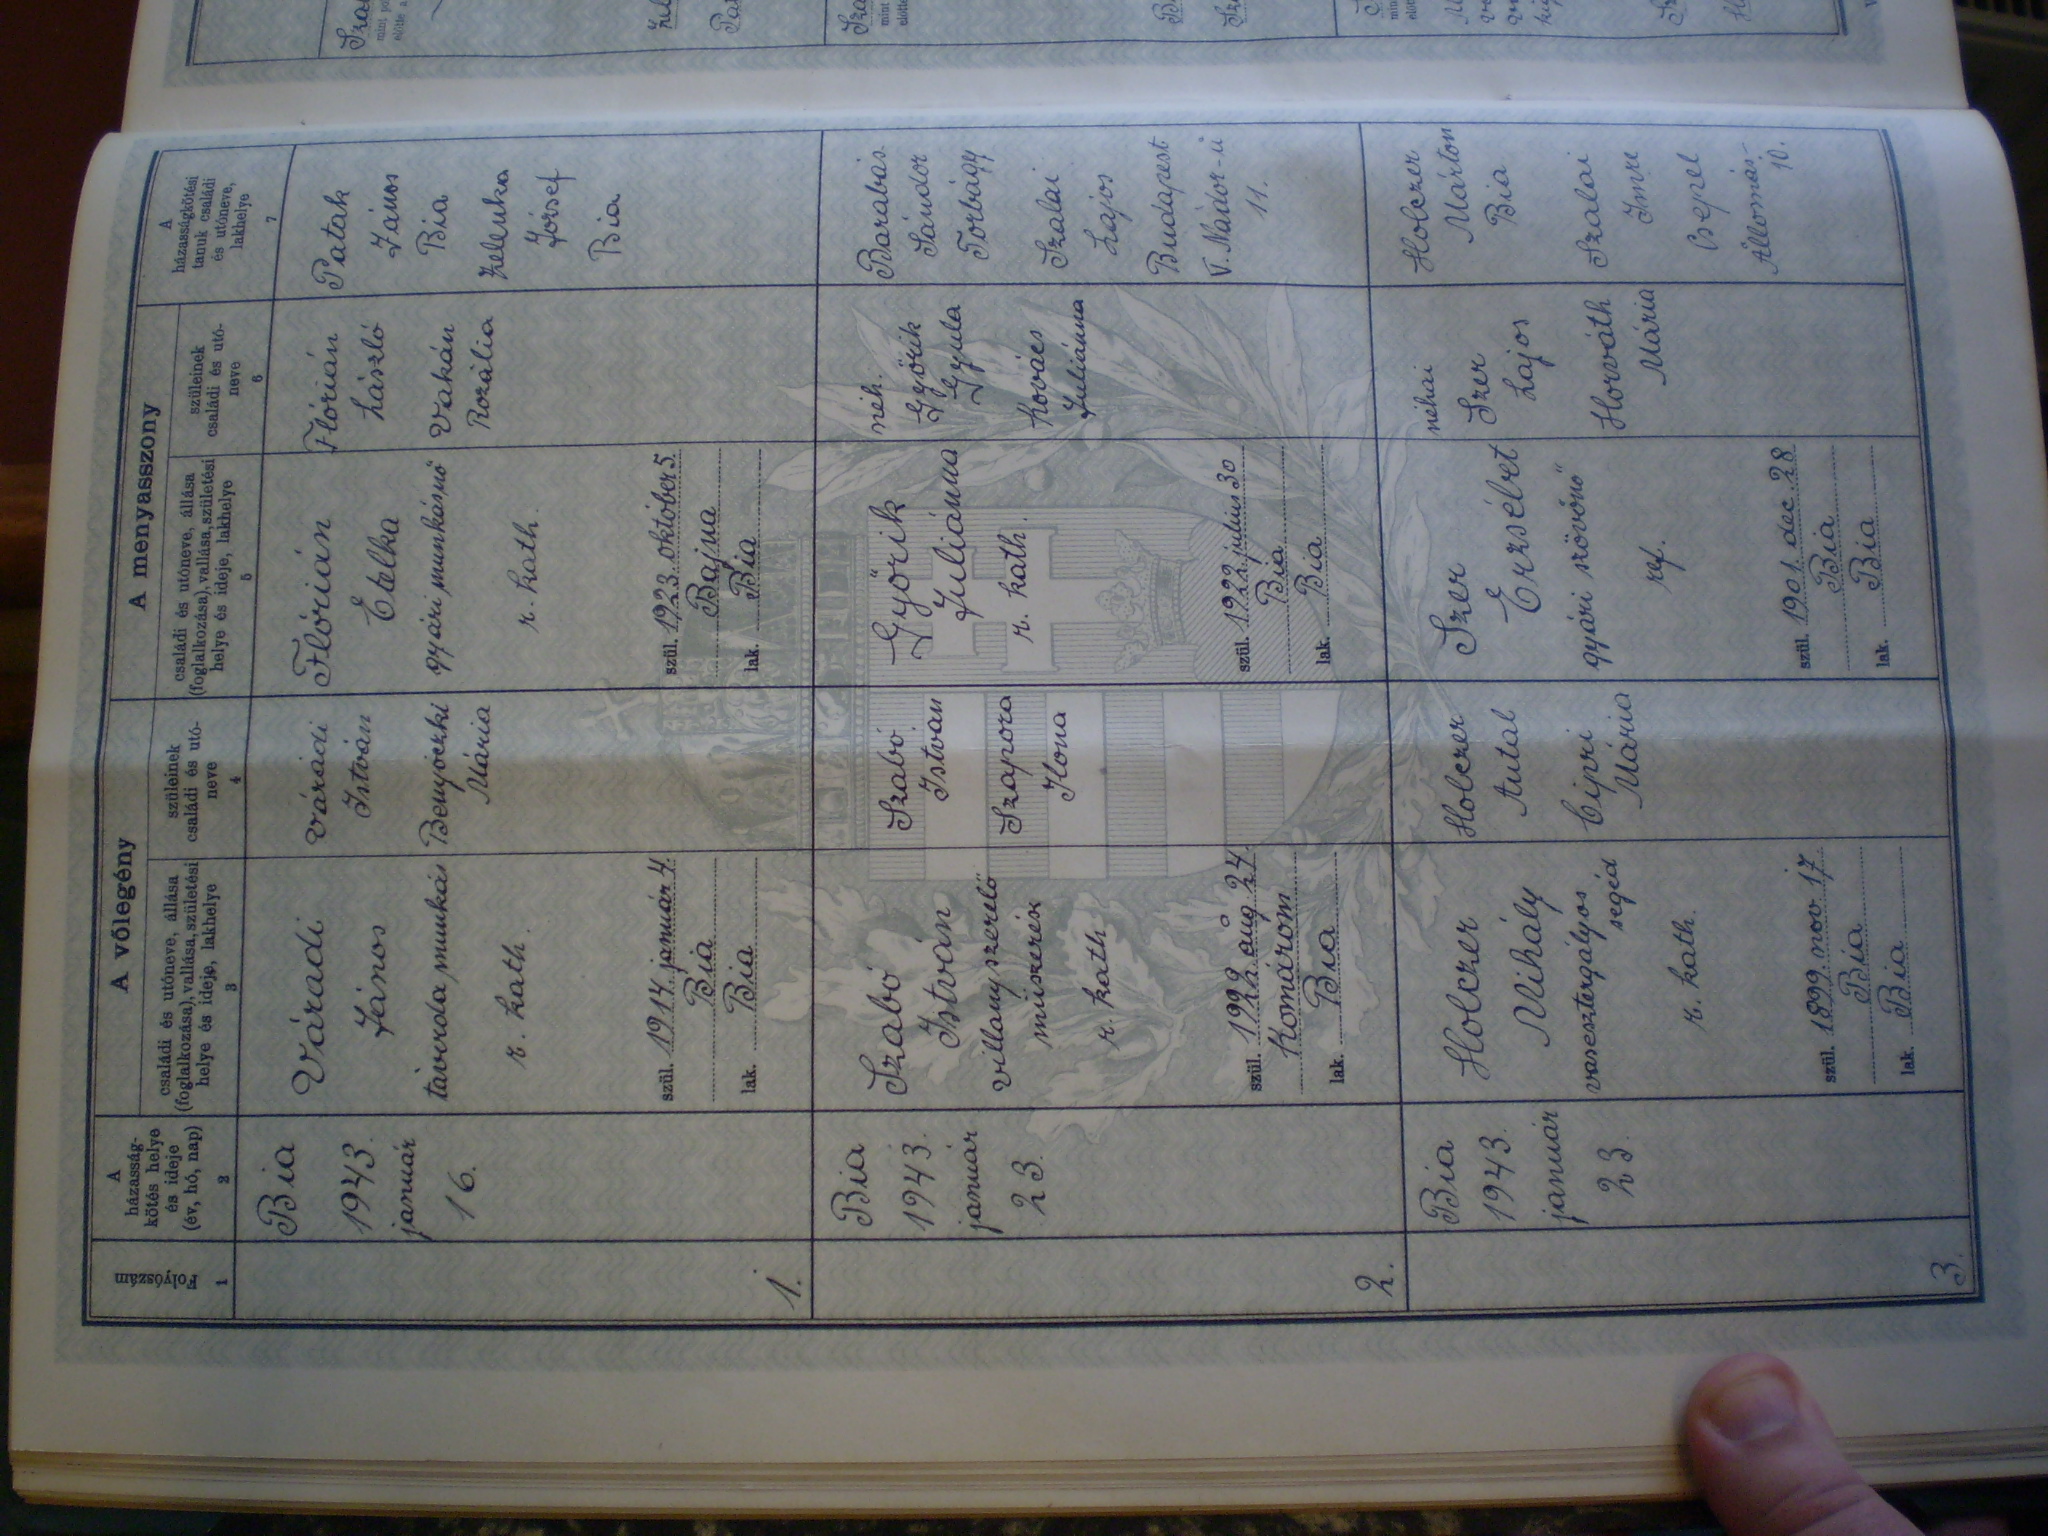 A vőlegény
A menyasszony
Folyószám
1
A
házasság-
kötés helye
és ideje
(év, hó, nap)
2
családi és utóneve, állása
(foglalkozása), vallása, születési
helye és ideje, lakhelye
3
szüleinek
családi és utó-
neve
4
családi és utóneve, állása
(foglalkozása), vallása, születési
helye és ideje, lakhelye
5
szüleinek
családi és utó-
neve
6
A
házasságkötési
tanuk családi
és utóneve,
lakhelye
7
1.
Bia
1943.
január
16.
Váradi
János
távirda munkás
r. kath.
szül. 1914 január 4.
Bia
lak. Bia
Váradi
István
Benyóczki
Mária
Flórián
Etelka
gyári munkásnő
r. kath.
szül. 1923. október 5.
Bajna
lak. Bia
Flórián
László
Vakán
Rozália
Patak
János
Bia
Zelenka
József
Bia
2.
Bia
1943.
január
23.
Szabó
István
villanyszerelő
műszerész
r. kath.
szül. 1922. aug 24.
Komárom
lak. Bia
Szabó
István
Szapora
Ilona
Győrik
Juliánna
r. kath.
szül. 1922 julius 30
Bia
lak. Bia
néh.
Győrik
Gyula
Kovács
Juliánna
Barabás
Sándor
Torbágy
Szalai
Lajos
Budapest
V. Nádor-u
11.
3.
Bia
1943.
január
23.
Holczer
Mihály
vasesztergályos
segéd
r. kath.
szül. 1899. nov. 17.
Bia
lak. Bia
Holczer
Antal
Cipri
Mária
Szer
Erzsébet
gyári szövőnő
ref.
szül. 1901. dec. 28
Bia
lak. Bia
néhai
Szer
Lajos
Horváth
Mária
Holczer
Márton
Bia
Szalai
Imre
Csepel
Állomás-
10.